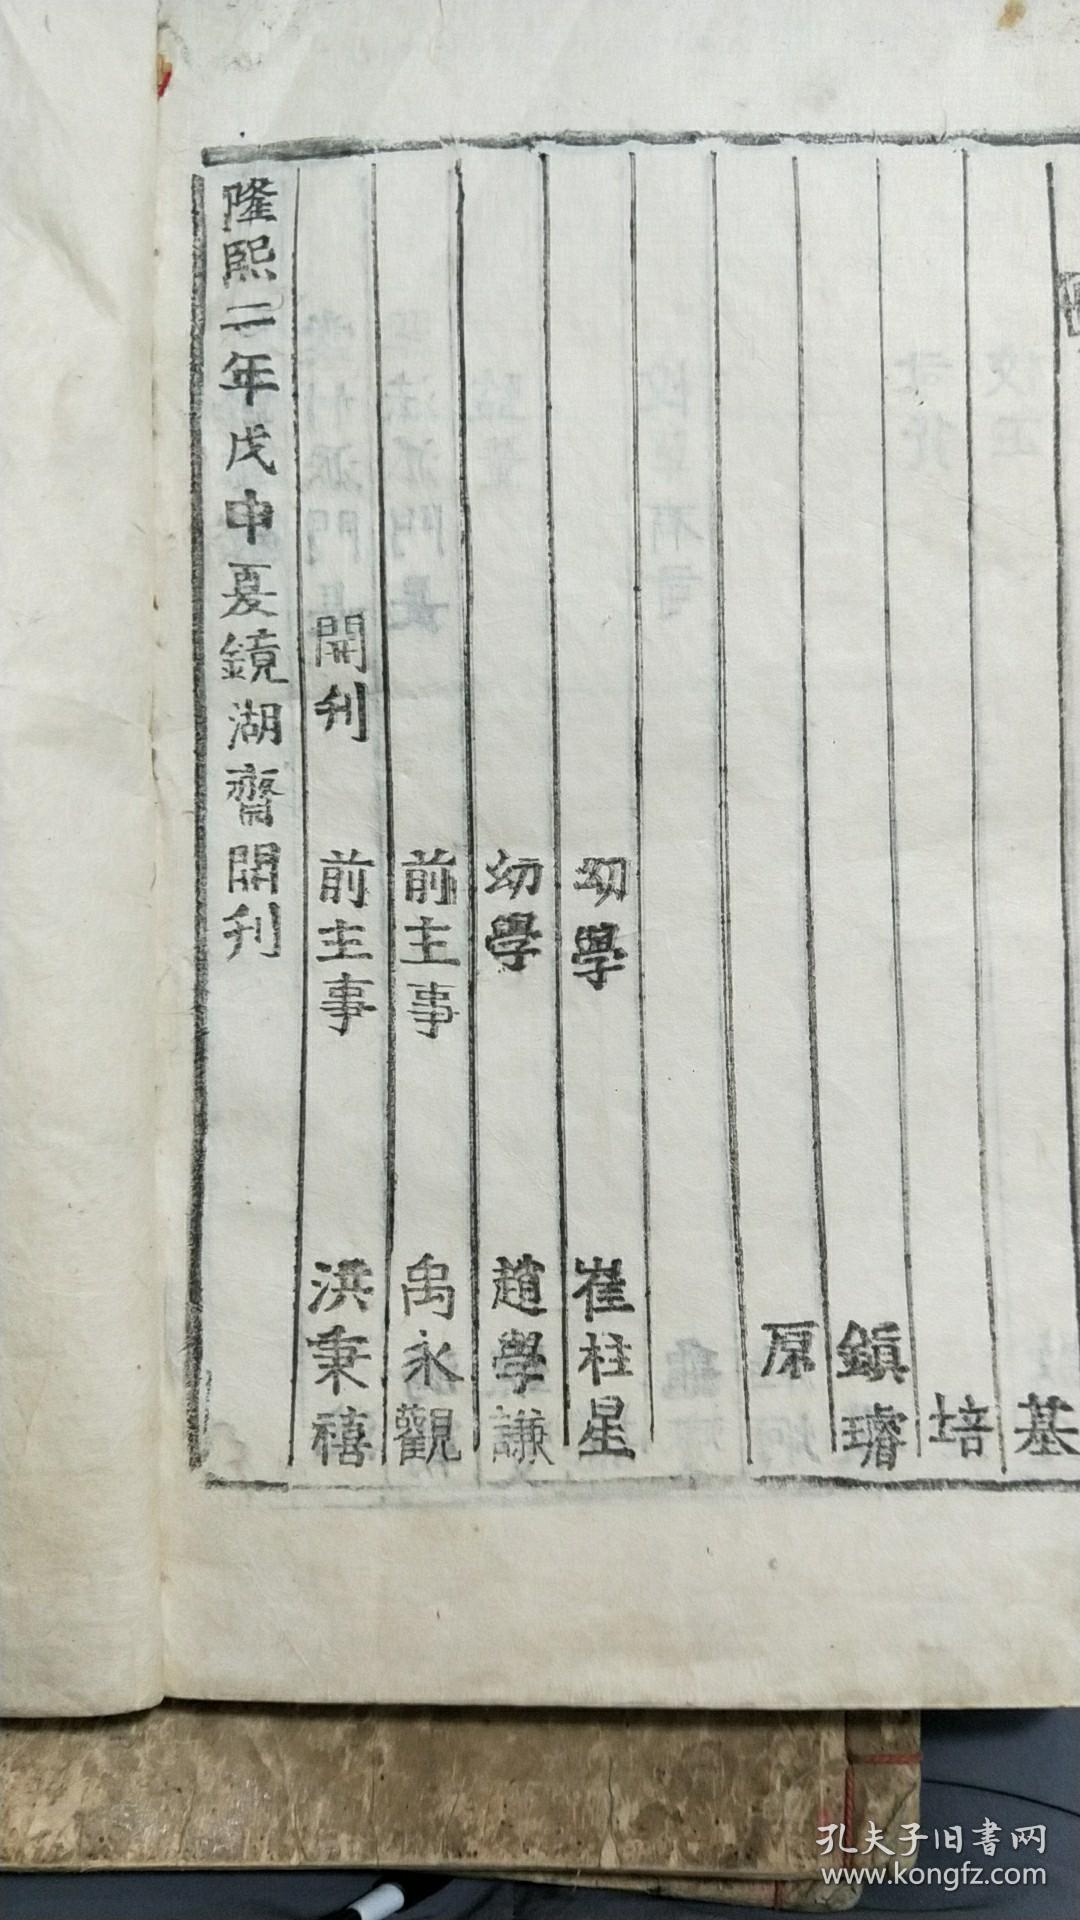 基
培
鎭璿
原
幼學 崔柱星
幼學 趙學謙
前主事 禹永觀
開刊 前主事 洪秉禧
隆熙二年戊申夏鏡湖齋開刊
孔夫子旧书网
www.kongfz.com